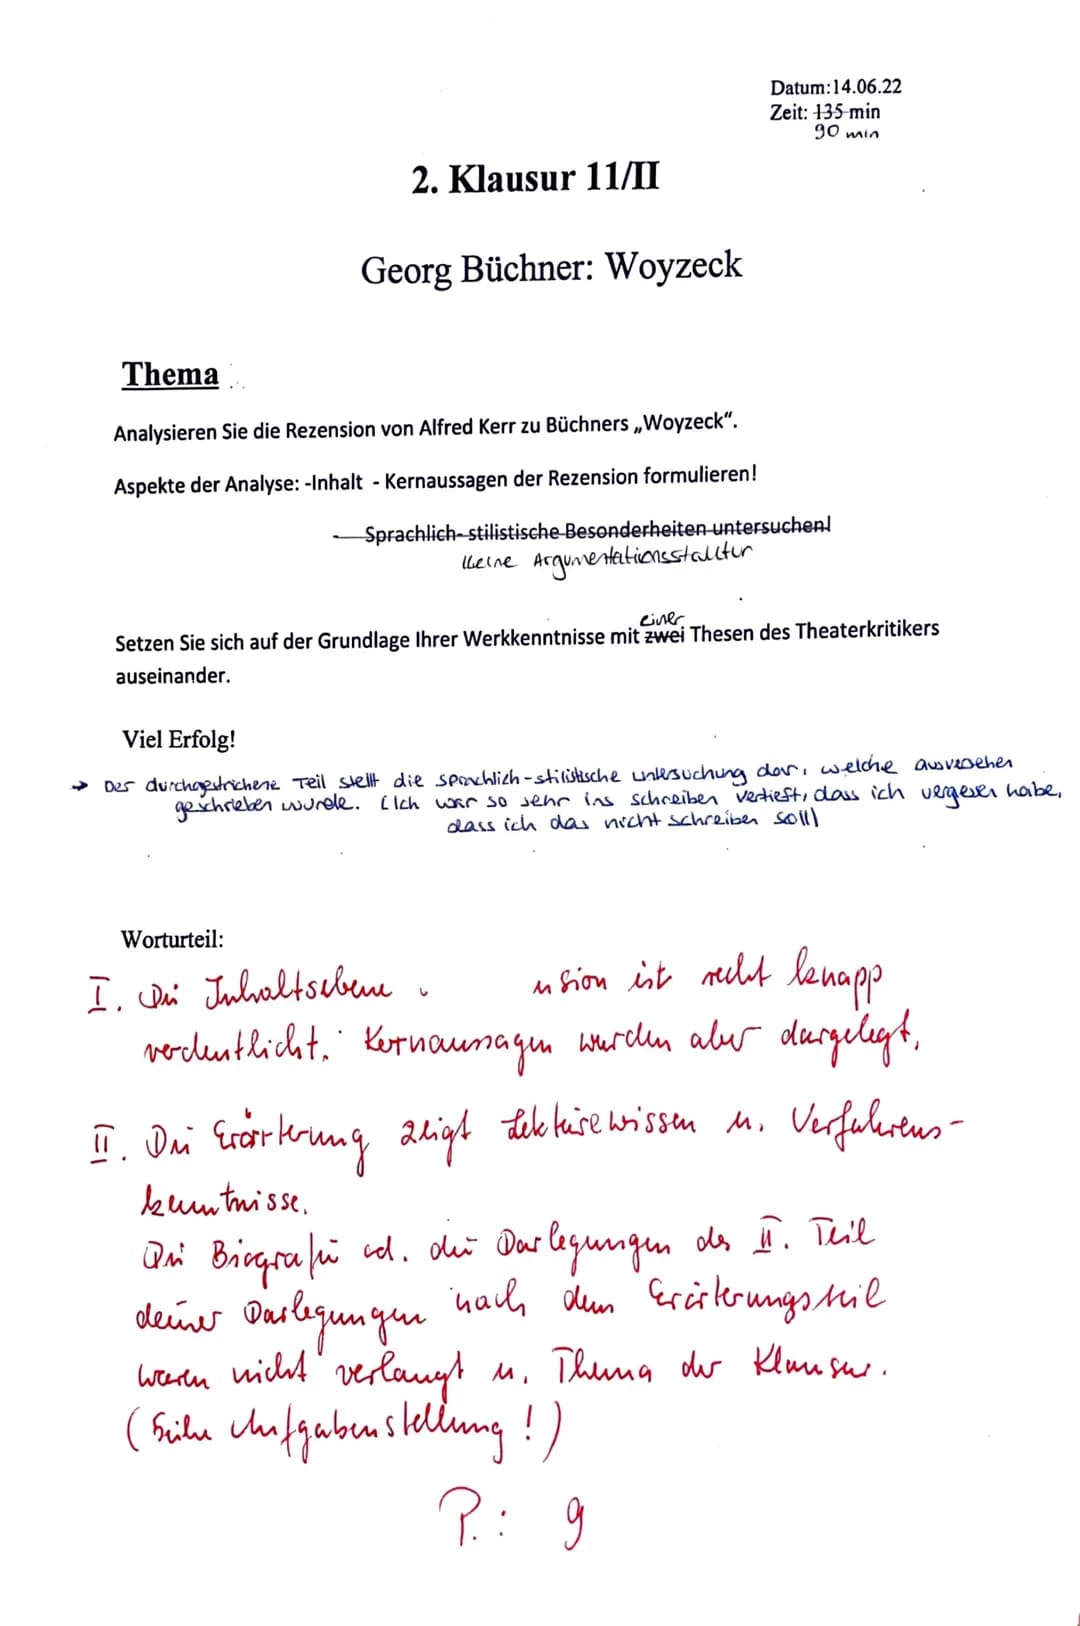 Datum:14.06.22
Zeit: 135 min
90 min
2. Klausur 11/II
Georg Büchner: Woyzeck
Thema
Analysieren Sie die Rezension von Alfred Kerr zu Büchners „Woyzeck“.
Aspekte der Analyse: -Inhalt - Kernaussagen der Rezension formulieren!
- Sprachlich- stilistische Besonderheiten untersuchen!
keine Argumentationsstruktur
einer
Setzen Sie sich auf der Grundlage Ihrer Werkkenntnisse mit zwei Thesen des Theaterkritikers
auseinander.
Viel Erfolg!
→ Der durchgestrichene Teil stellt die sprachlich-stilistische untersuchung dar, welche ausversehen
geschrieben wurde. (Ich war so sehr ins schreiben vertieft, dass ich vergessen habe,
dass ich das nicht schreiben soll)
Worturteil:
I. Die Inhaltsebene nsion ist recht knapp
verdeutlicht. Kernaussagen wurden aber dargelegt.
II. Die Erörterung zeigt Lektürewissen u. Verfahrens-
kenntnisse.
Die Biografie od. die Darlegungen des II. Teil
deiner Darlegungen nach dem Erörterungsteil
waren nicht verlangt u. Thema der Klausur.
(Siehe Aufgabenstellung!)
P.: 9